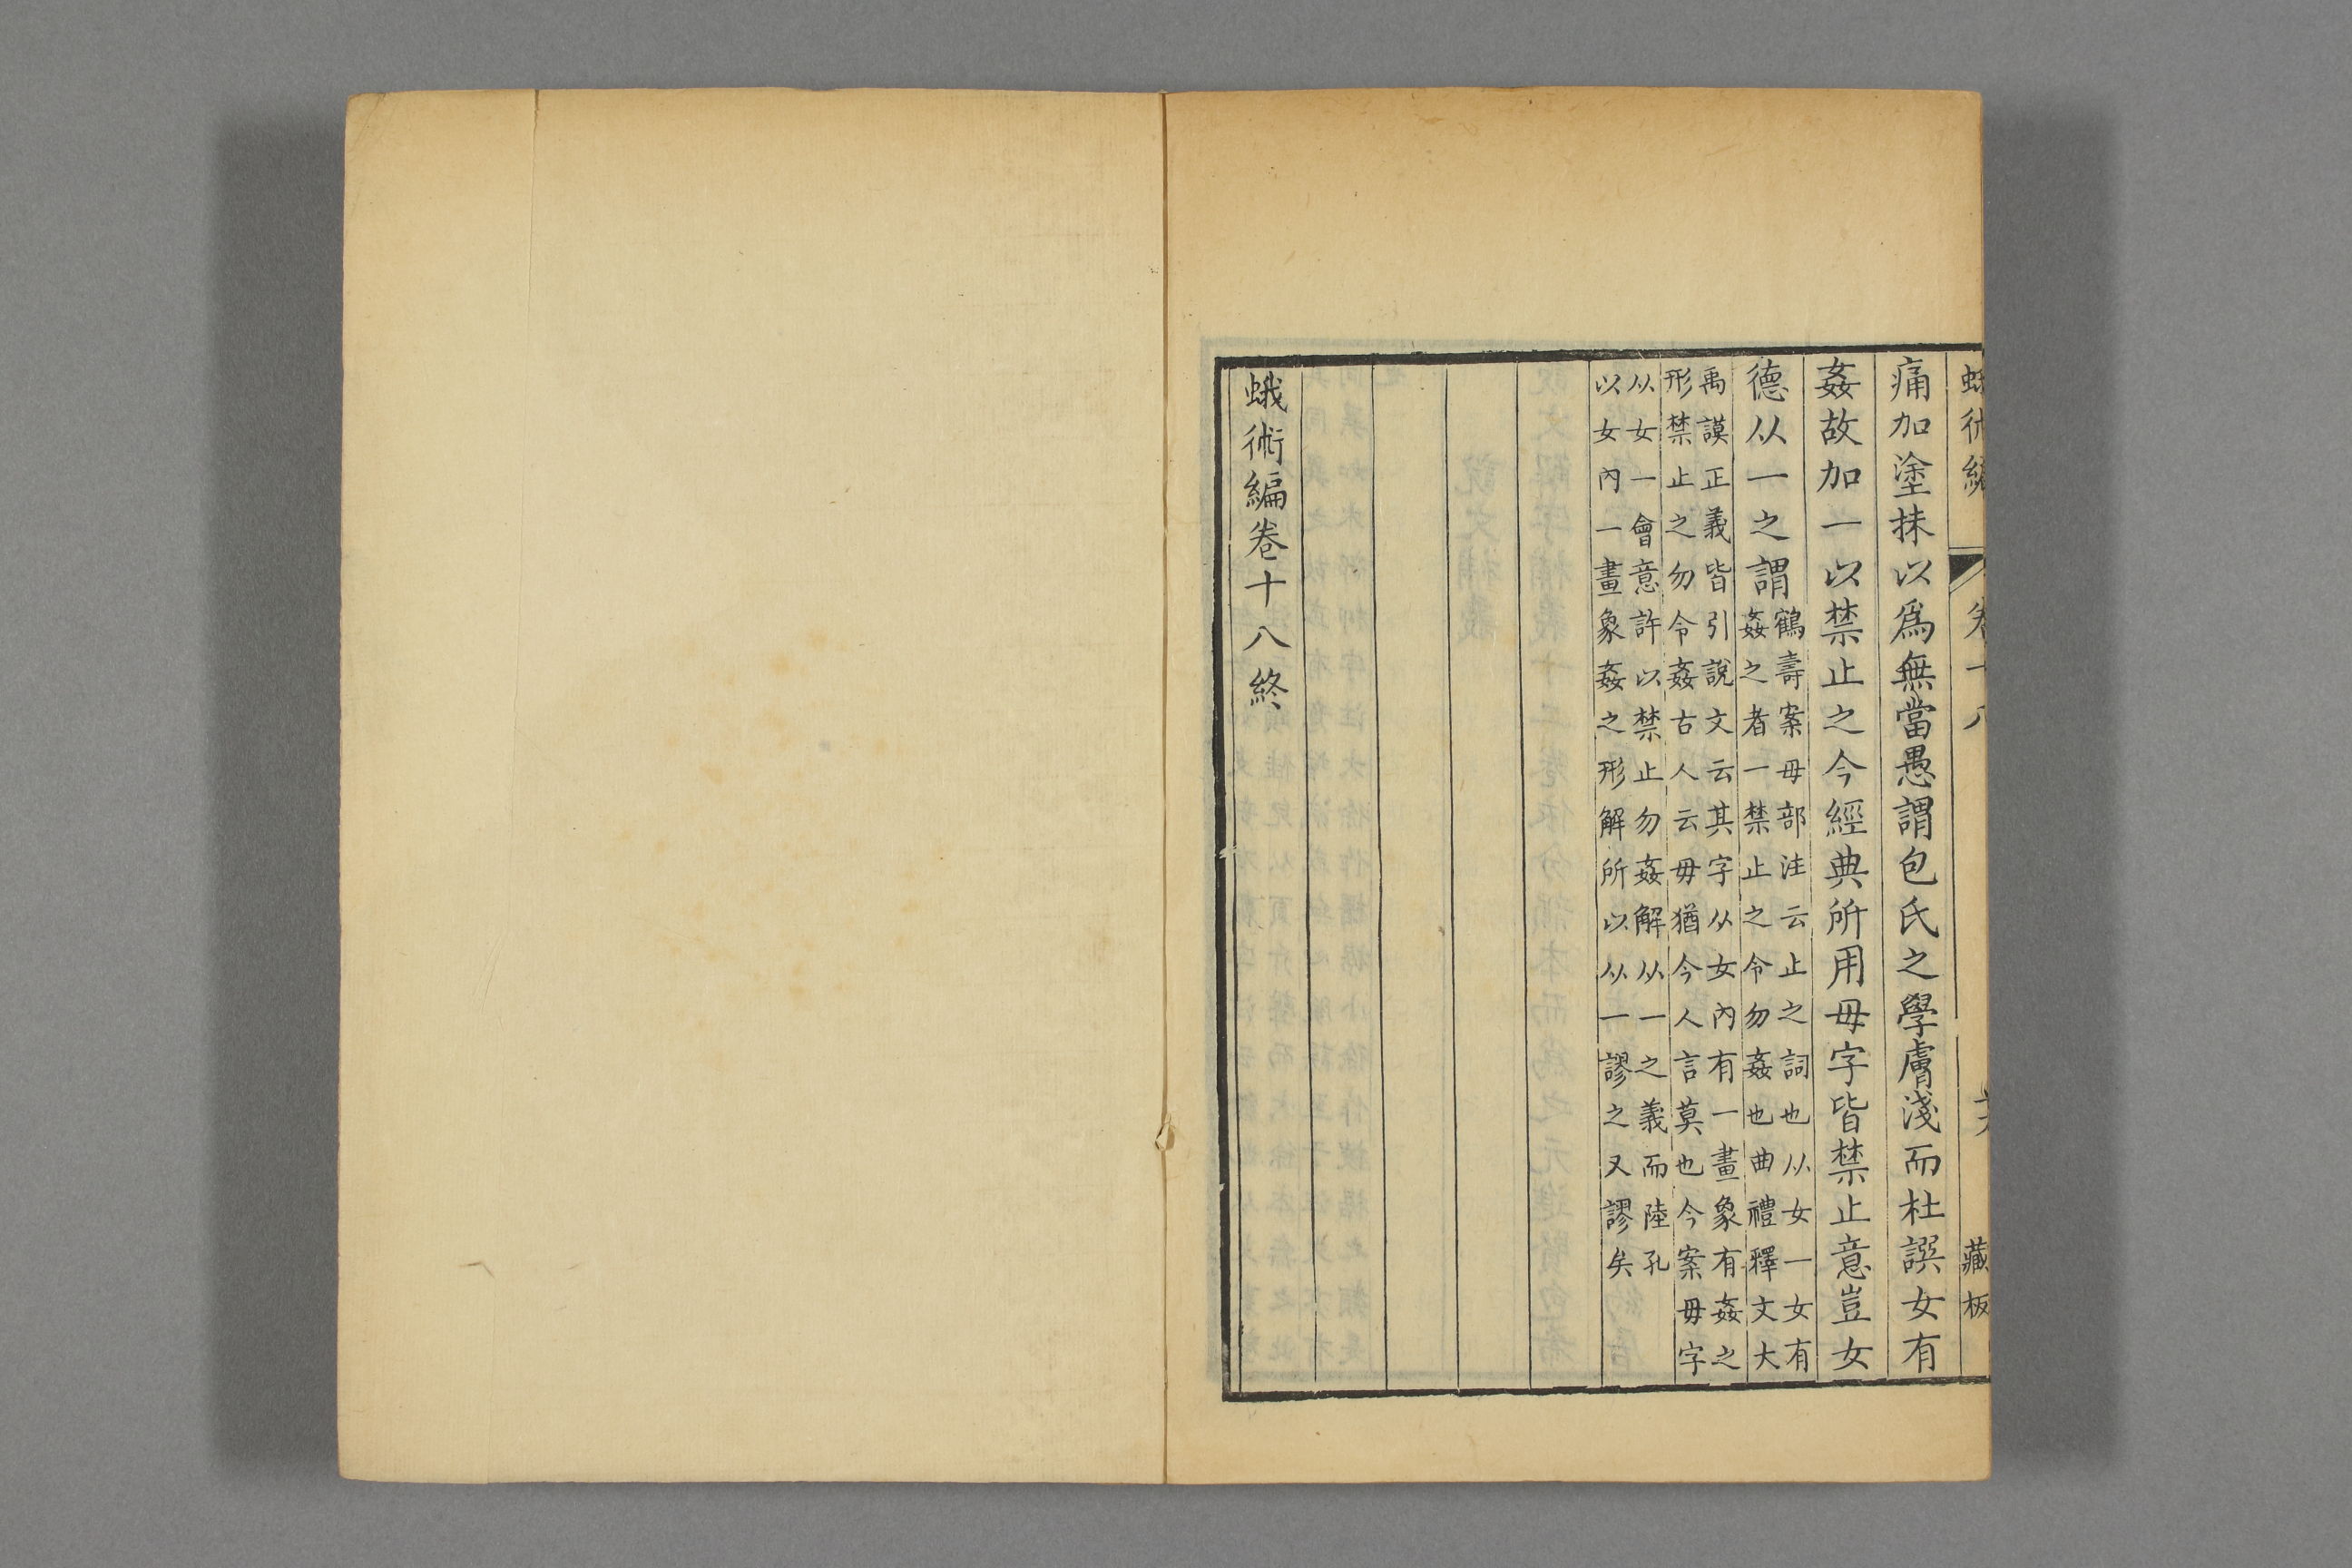 蛾術編 卷十八 藏板
痛加塗抹以爲無當愚謂包氏之學膚淺而杜譔女有
姦故加一以禁止之今經典所用毋字皆禁止意豈女
德从一之謂鶴壽案毋部注云止之詞也从女一女有
姦之者一禁止之令勿姦也曲禮釋文大
禹謨正義皆引說文云其字从女內有一畫象有姦之
形禁止之勿令姦古人云毋猶今人言莫也今案毋字
从女一會意許以禁止勿姦解从一之義而陸孔
以女內一畫象姦之形解所以从一謬之又謬矣
蛾術編卷十八終